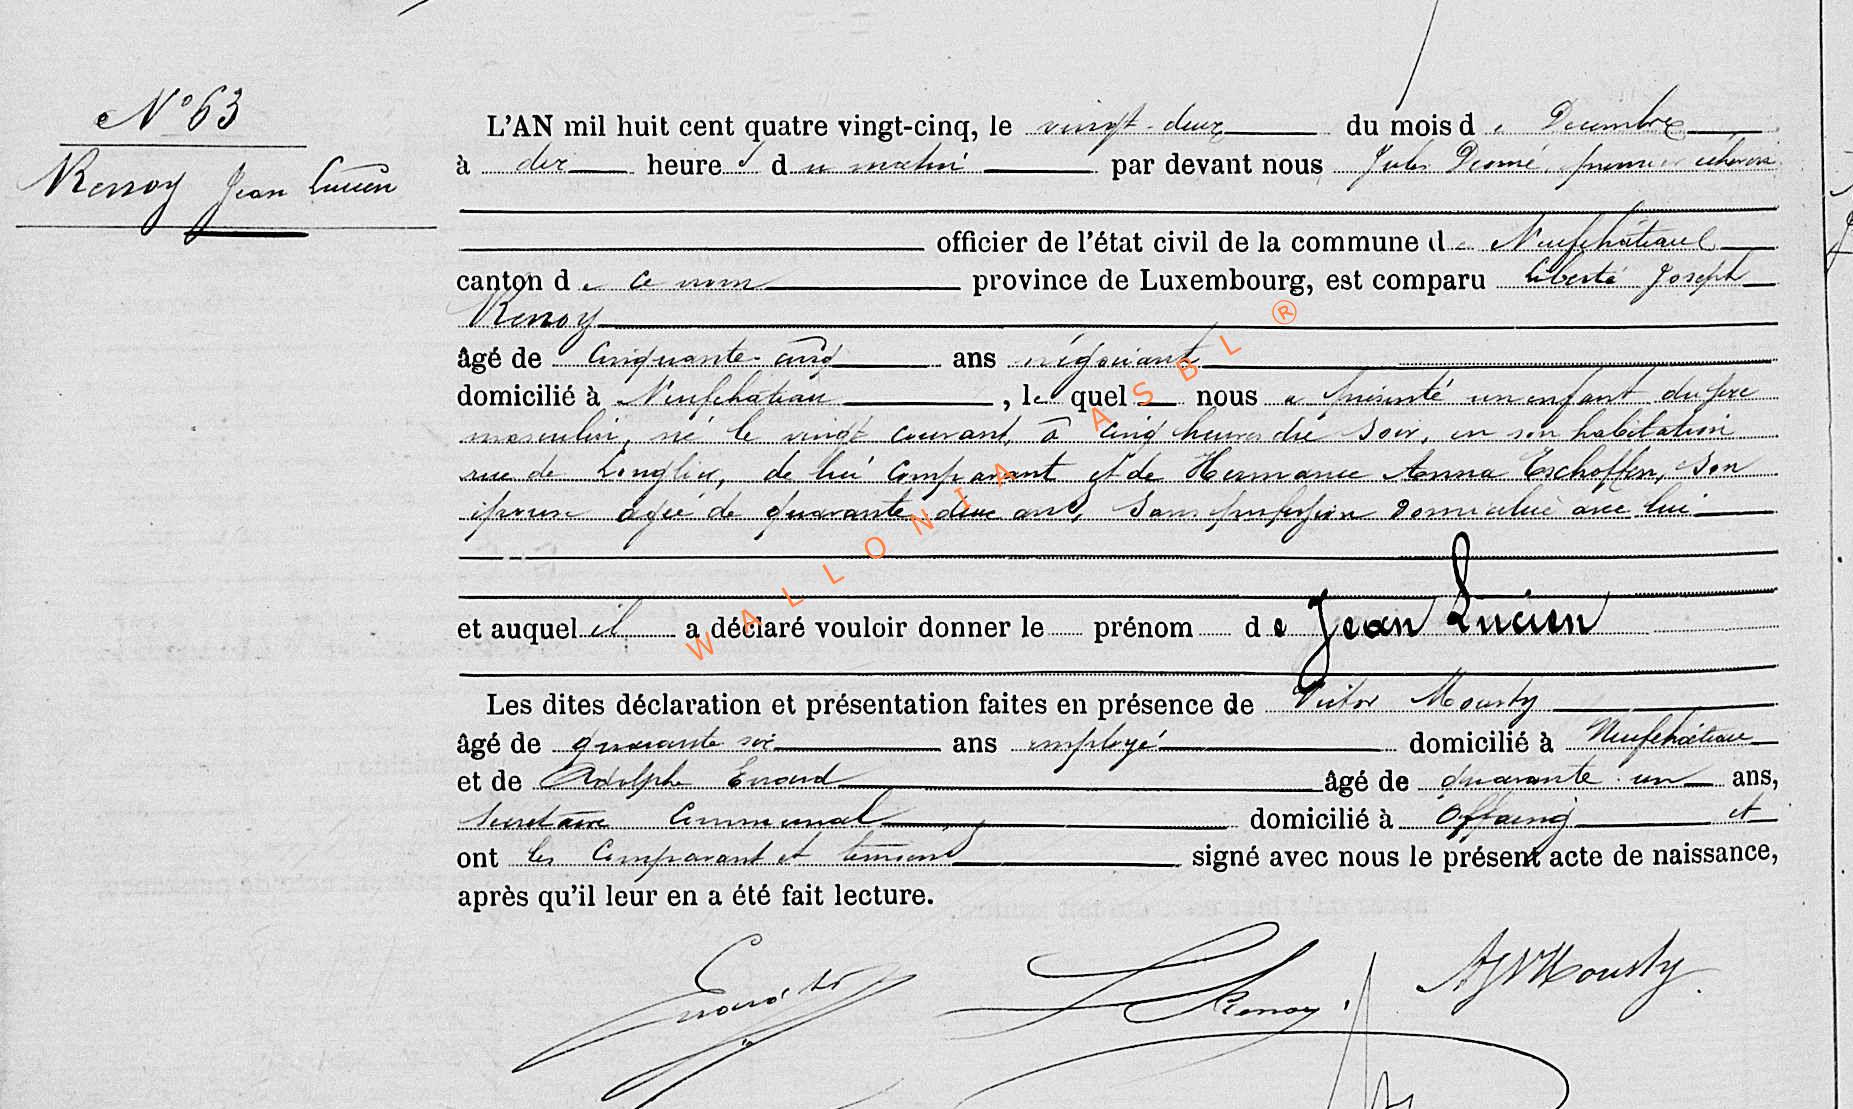 N° 63
Renoy Jean Lucien
L'AN mil huit cent quatre vingt-cinq, le vingt-deux du mois de Décembre
à dix heures du matin par devant nous Jules premier échevin
officier de l'état civil de la commune de Neufchâteau
canton de ce nom province de Luxembourg, est comparu Liberté Joseph
Renoy
âgé de cinquante-cinq ans négociant
domicilié à Neufchâteau, lequel nous a présenté un enfant du sexe
masculin, né le vingt courant, à cinq heures du soir, en son habitation
rue de Longlier, de lui comparant et de Hermance Anna Tschoffen, son
épouse âgée de quarante deux ans, sans profession domiciliée avec lui
et auquel il a déclaré vouloir donner le prénom de Jean Lucien
Les dites déclaration et présentation faites en présence de Victor Mousty
âgé de quarante six ans employé domicilié à Neufchâteau
et de Adolphe Evrard âgé de quarante un ans,
secrétaire communal domicilié à Offaing et
ont les comparant et témoins signé avec nous le présent acte de naissance,
après qu'il leur en a été fait lecture.
WALLONIA ASBL ®
Renoy
Mousty